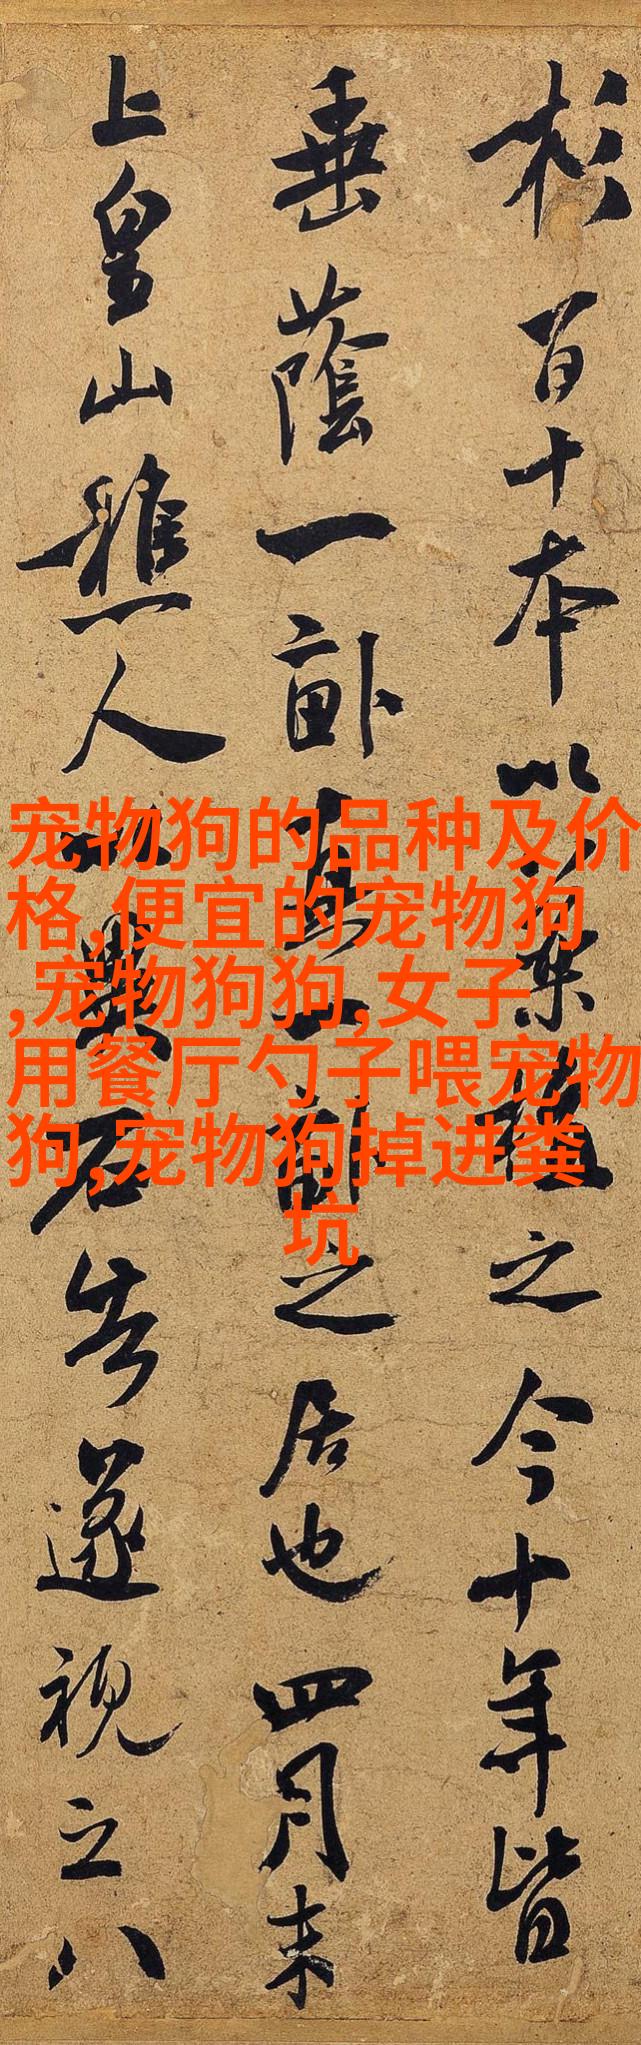 杉百十本以之今十年皆
垂蔭一畝真一畝之居也四月末
上皇山樵人以異石告遂視之八
宠物狗的品种及价
格,便宜的宠物狗
,宠物狗狗,女子
用餐厅勺子喂宠物
狗,宠物狗掉进粪
坑